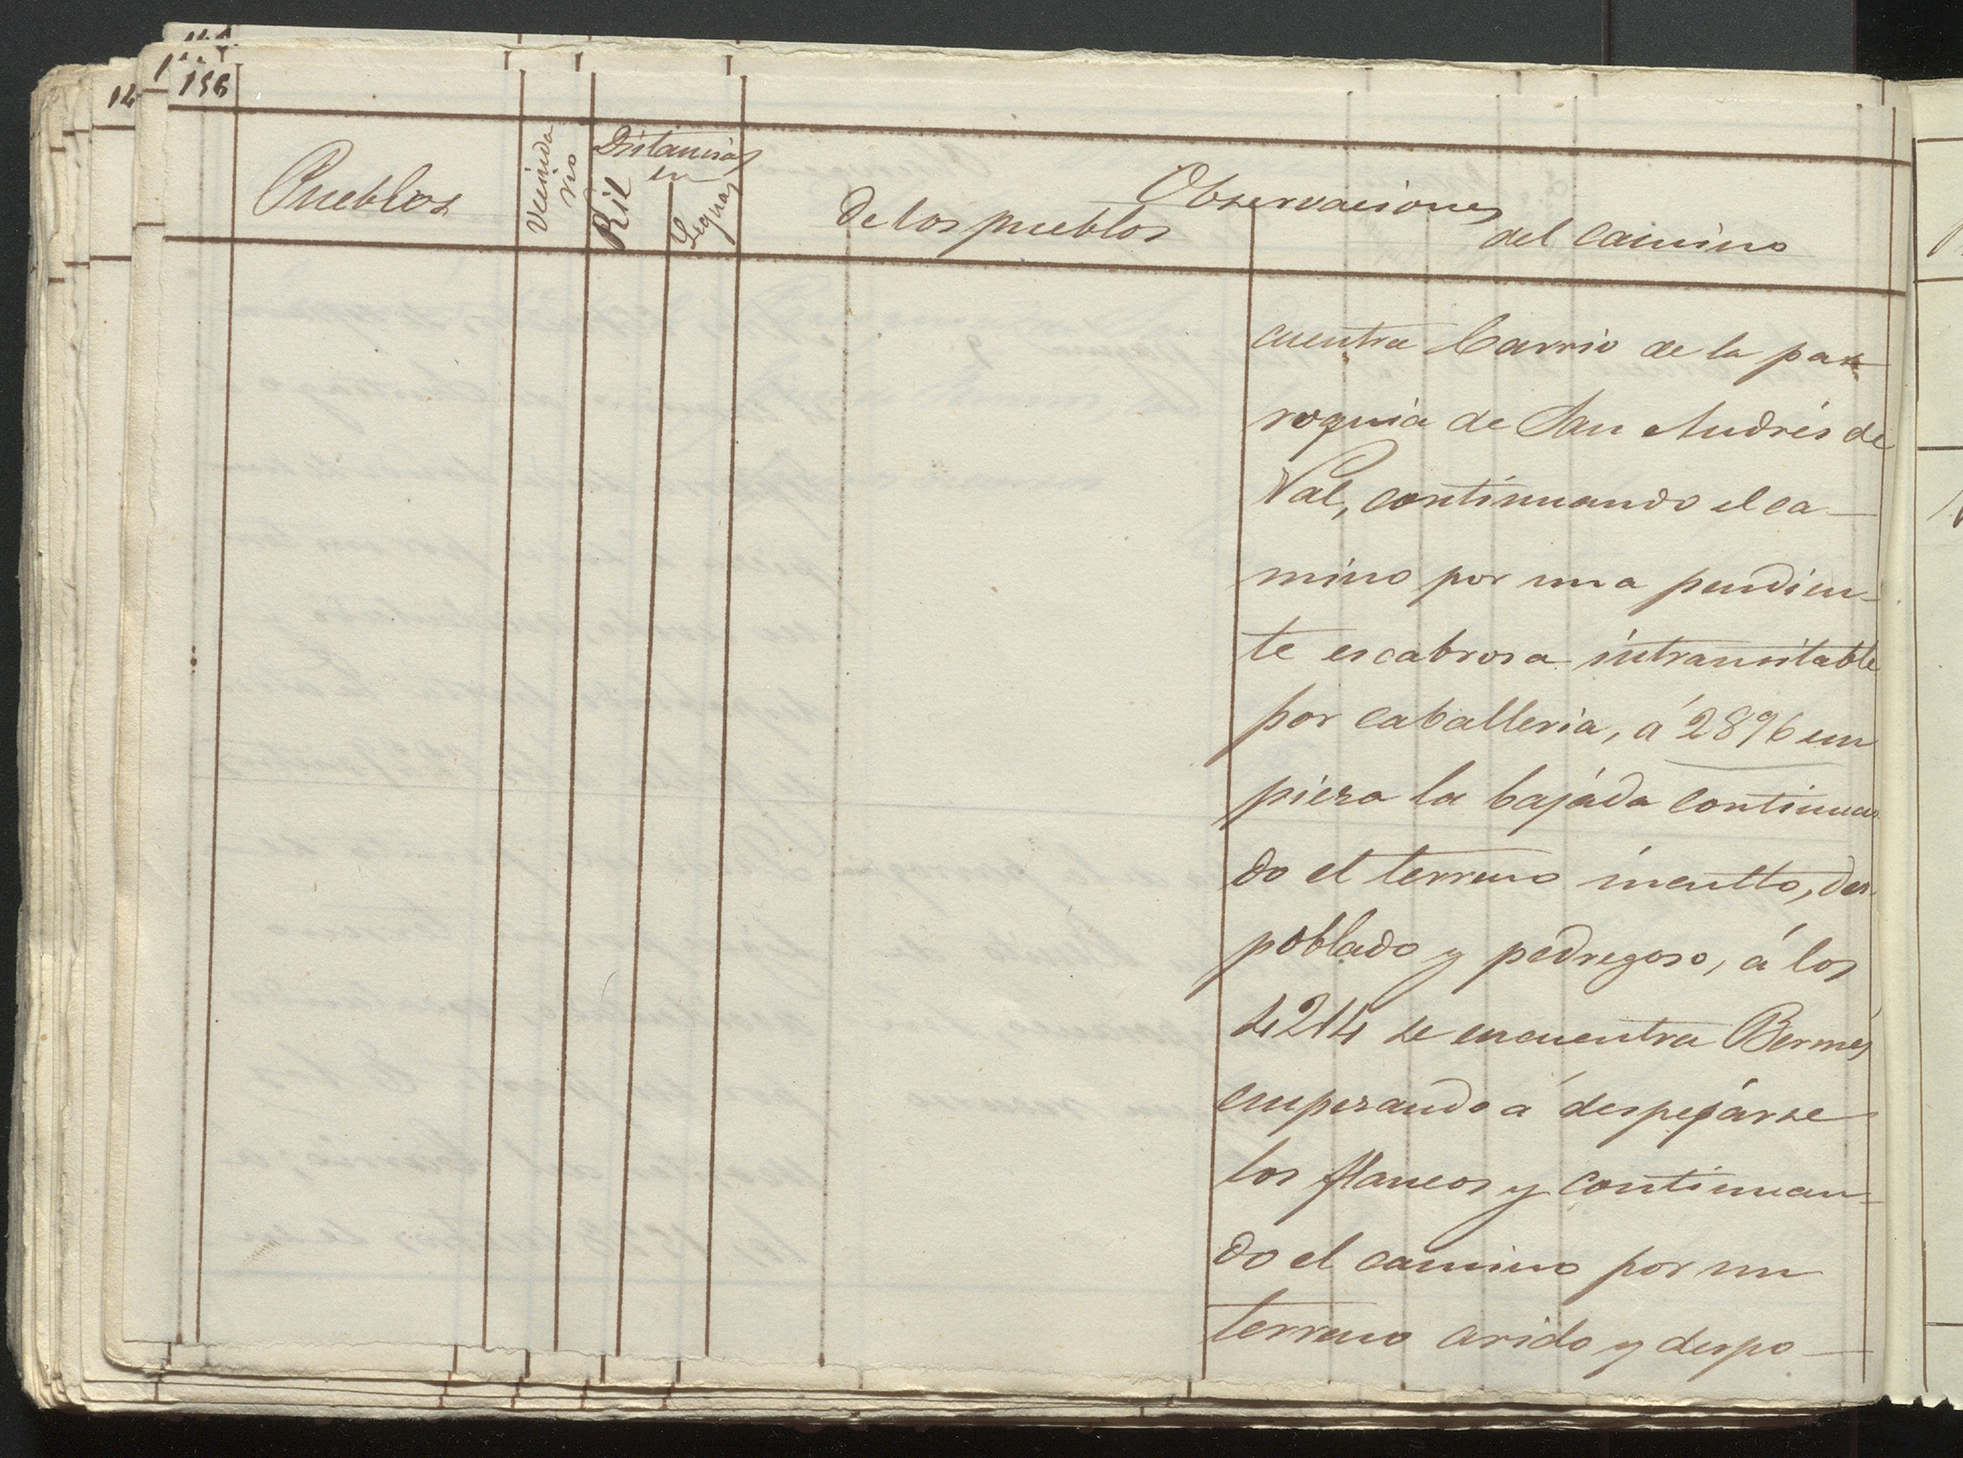 156
Pueblos
Vecinda
rio
Distancias
en
Kil
Leguas
Observaciones
de los pueblos
del camino
cuentra barrio de la par
roquia de San Andrés de
Val, continuando el ca-
mino por una pendien-
te escabrosa intransitable
por caballeria, á 2896 em
pieza la bajáda continuan
do el terreno inculto, des
poblado y pedregoso, á los
4214 se encuentra Bermes
empezando á despejárse
los flancos y continuan-
do el camino por un
terreno arido y despo-